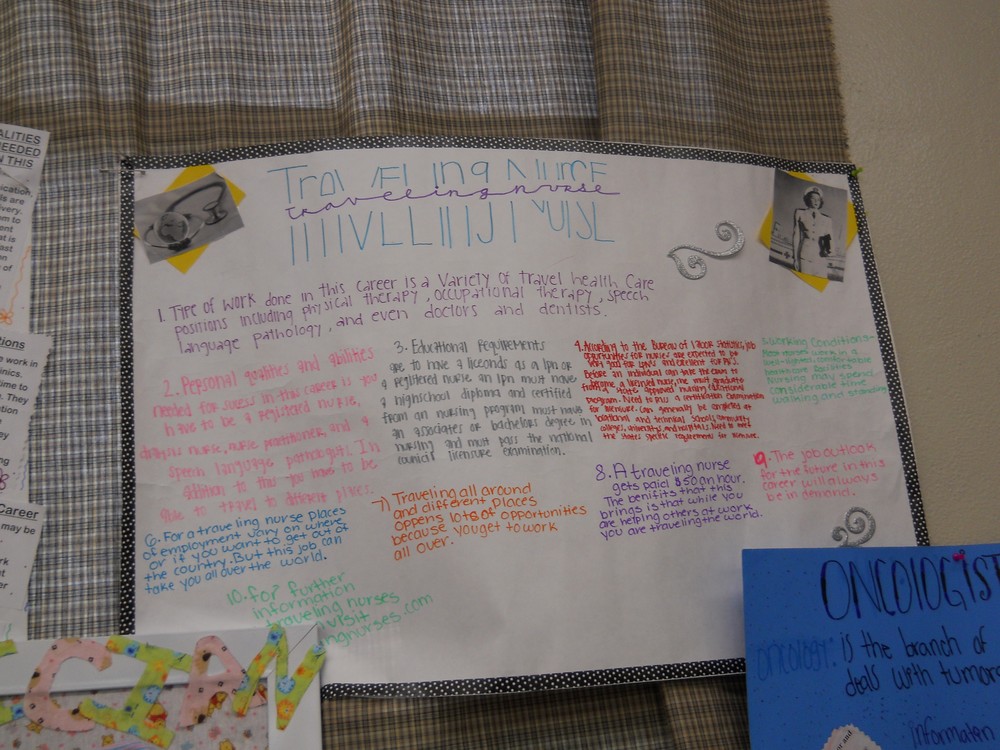 Traveling Nurse
traveling nurse
1. Type of work done in this career is a variety of travel health care
positions including physical therapy, occupational therapy, speech
language pathology, and even doctors and dentists.
2. Personal qualities and abilities
needed for sucess in this career is you
have to be a registered nurse,
dialysis nurse, nurse practitioner, and a
speech language pathologist. In
addition to this you have to be
able to travel to different places.
3. Educational requirements
are to have a
registered nurse. an lpn must have
a highschool diploma and certified
from an nursing program, must have
an associates or bachelors degree in
nursing and must pass the national
council licensure examination.
4. According to the Bureau of labor statistics, job
opportunities for nurses are expected to be
very good for LPNs and excellent for RNs.
Before an individual can take the exam to
become a licensed nurse, he must graduate
a state approved nursing educational
program. Need to pass a certification examination
for licensure. Can generally be completed at
vocational and technical schools, community
colleges, universities, and hospitals. Need to meet
the states specific requirements for licensure.
Working Conditions-
Most nurses work in a
well-lighted, comfortable
healthcare facilities.
Nursing may spend
considerable time
walking and standing
6. For a traveling nurse places
of employment vary on where
or if you want to get out of
the country. But this job can
take you all over the world.
7) Traveling all around
and different places
oppens lots of opportunities
because you get to work
all over.
8. A traveling nurse
gets paid $50 an hour.
The benifits that this
brings is that while you
are helping others at work
you are traveling the world.
9. The job outlook
for the future in this
career will always
be in demand.
10. for further
information
traveling nurses
visit
ngnurses.com
ALITIES
EEDED
N THIS
Career
may be
CIAN
ONCOLOGIST
oncology: is the branch of
deals with tumor
informaten